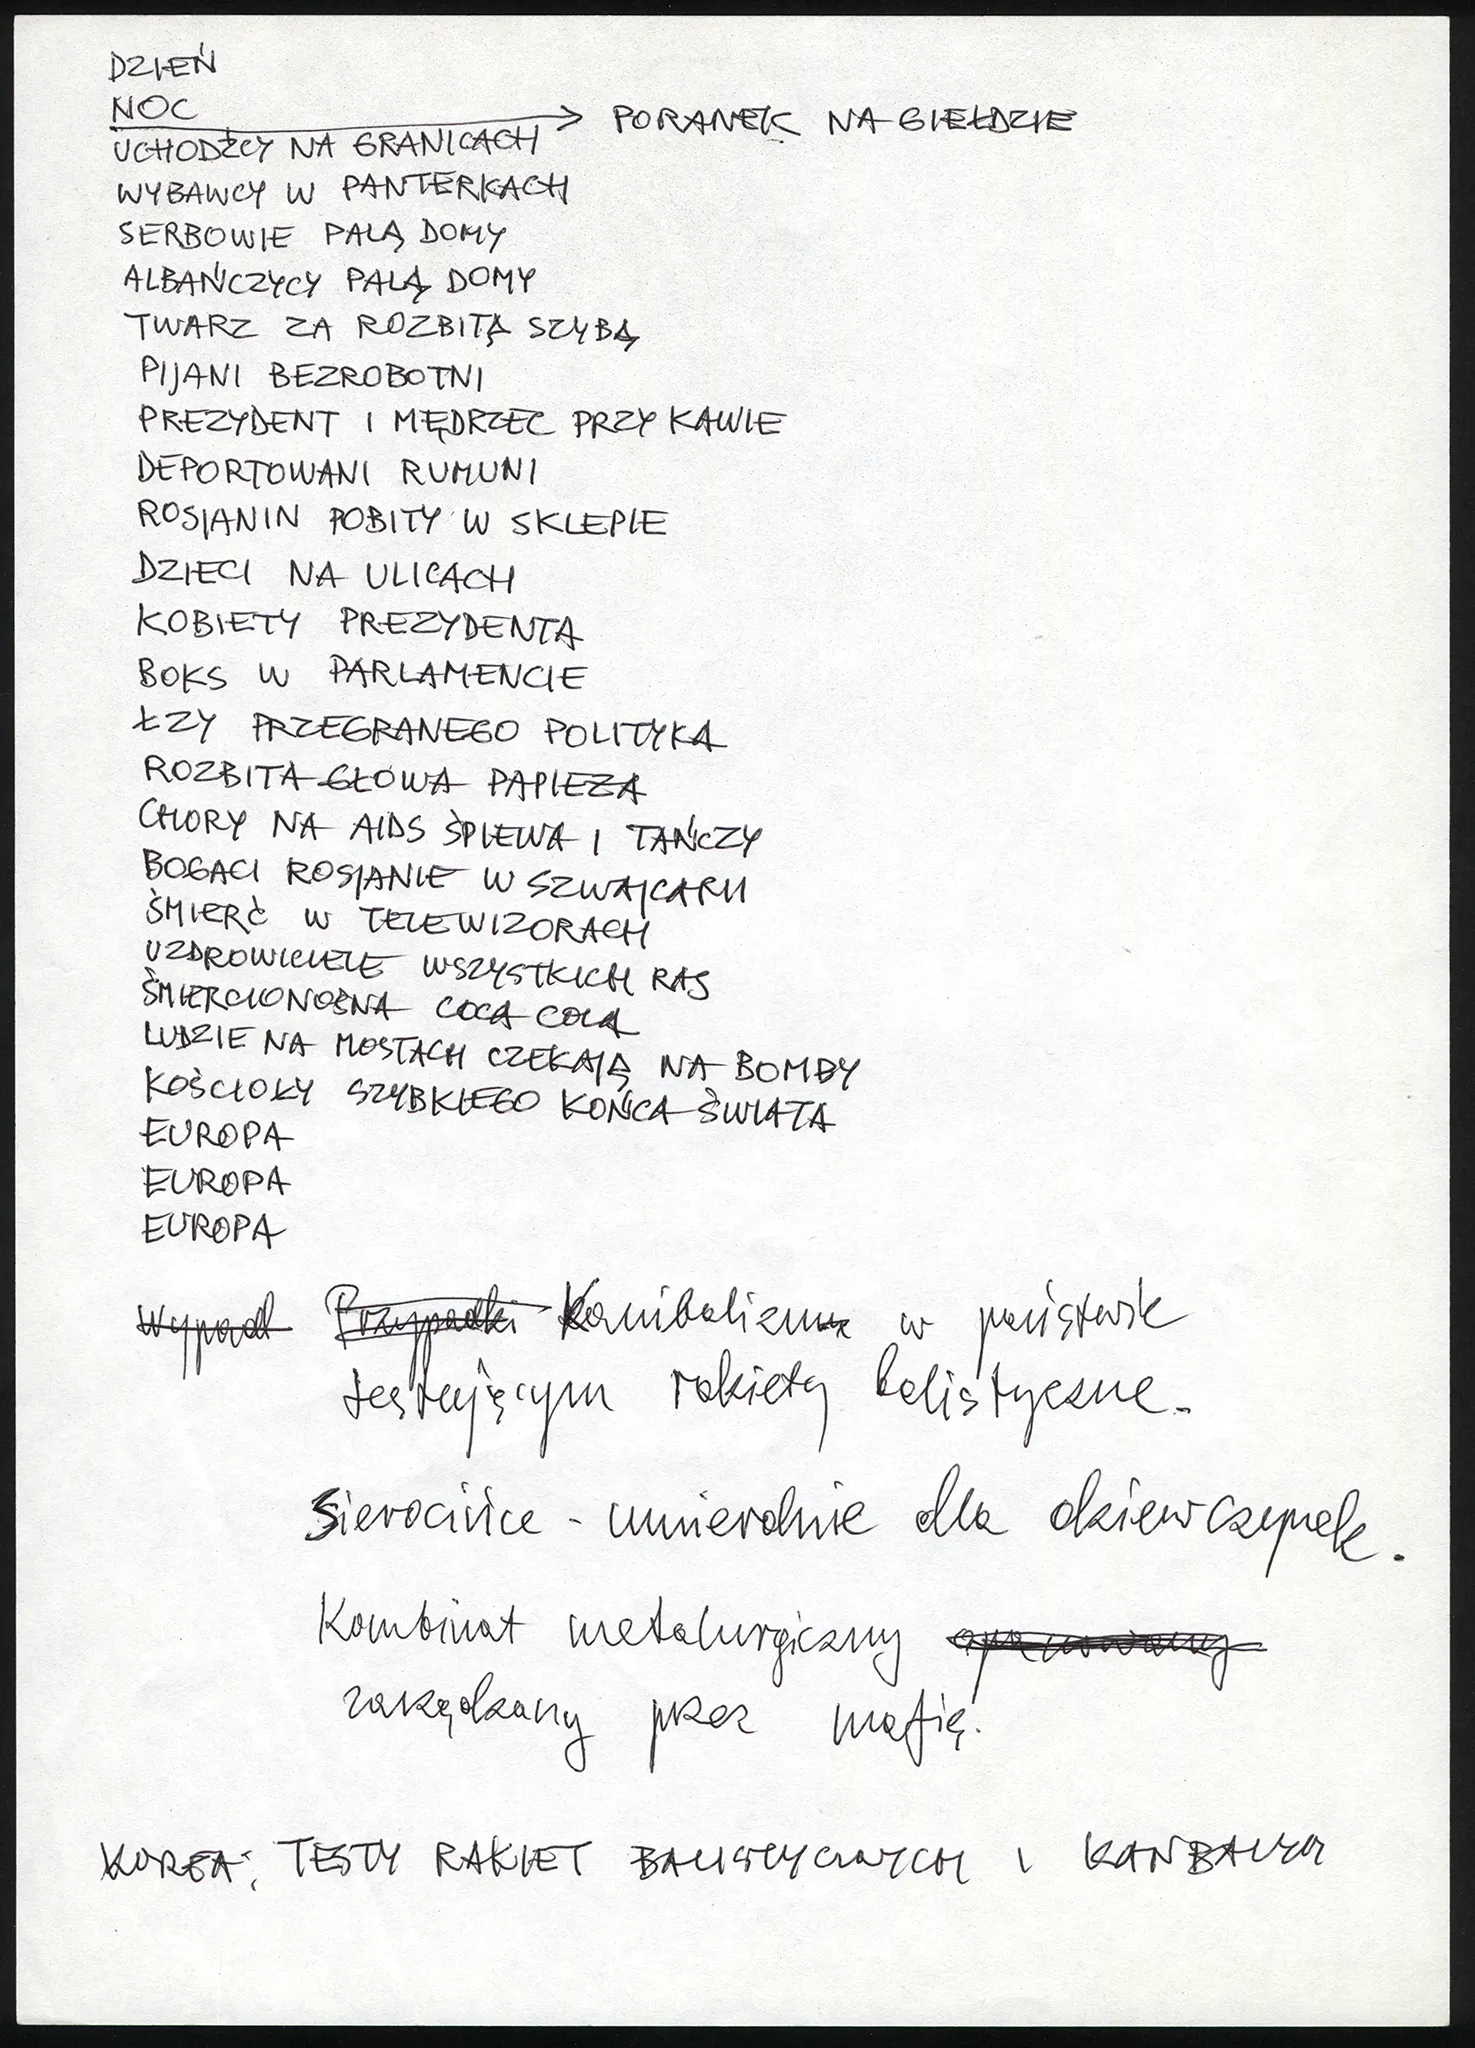 DZIEŃ
NOC
PORANEK NA GIEŁDZIE
UCHODŹCY NA GRANICACH
WYBAWCY W PANTERKACH
SERBOWIE PALĄ DOMY
ALBAŃCZYCY PALĄ DOMY
TWARZ ZA ROZBITĄ SZYBĄ
PIJANI BEZROBOTNI
PREZYDENT I MĘDRZEC PRZY KAWIE
DEPORTOWANI RUMUNI
ROSJANIN POBITY W SKLEPIE
DZIECI NA ULICACH
KOBIETY PREZYDENTA
BOKS W PARLAMENCIE
ŁZY PRZEGRANEGO POLITYKA
ROZBITA GŁOWA PAPIEŻA
CHORY NA AIDS ŚPIEWA I TAŃCZY
BOGACI ROSJANIE W SZWAJCARII
ŚMIERĆ W TELEWIZORACH
UZDROWICIELE WSZYSTKICH RAS
ŚMIERCIONOŚNA COCA COLA
LUDZIE NA MOSTACH CZEKAJĄ NA BOMBY
KOŚCIOŁY SZYBKIEGO KOŃCA ŚWIATA
EUROPA
EUROPA
EUROPA
Wypad Przypadki Kanibalizm w państwie
testującym rakiety balistyczne.
Sierocińce - umieralnie dla dziewczynek.
Kombinat metalurgiczny opanowany
zarządzany przez mafię.
KOREA: TESTY RAKIET BALISTYCZNYCH I